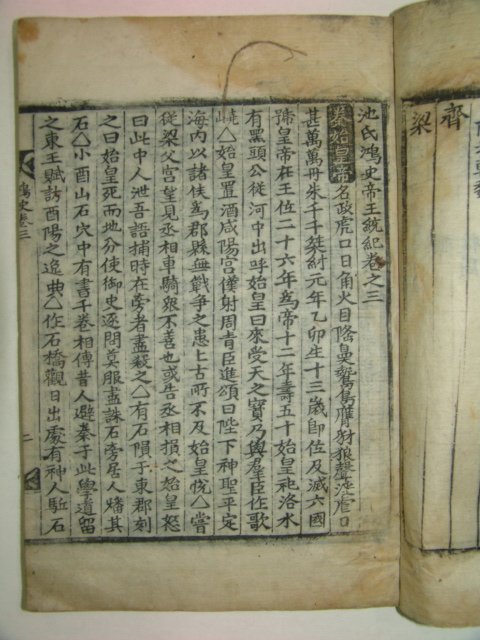 齊
梁
池氏鴻史帝王統紀卷之三
秦始皇帝 名政虎口日角火目隆皇鷙鳥膺豺狼聲 口
甚萬萬丹朱千千桀紂元年乙卯生十三歲即位及滅六國
皇帝在王位二十六年爲帝十二年壽五十始皇祀洛水
有黑頭公從河中出呼始皇曰來受天之寶乃與羣臣作歌
嶢△始皇置酒咸陽宮僕射周青臣進頌曰陛下神聖平定
海內以諸侯爲郡縣無戰爭之患上古所不及始皇悅△嘗
從梁父宮望見丞相車騎衆不善也或告丞相損之始皇怒
曰此中人泄吾語捕時在旁者盡殺之△有石隕于東郡刻
之曰始皇死而地分使御史逐問莫服盡誅石旁居人燔其
石△小酉山石穴中有書千卷相傳昔人避秦于此學遺留
之東王賦訪酉陽之逸典△作石橋觀日出處有神人駈石
鴻史卷三 二